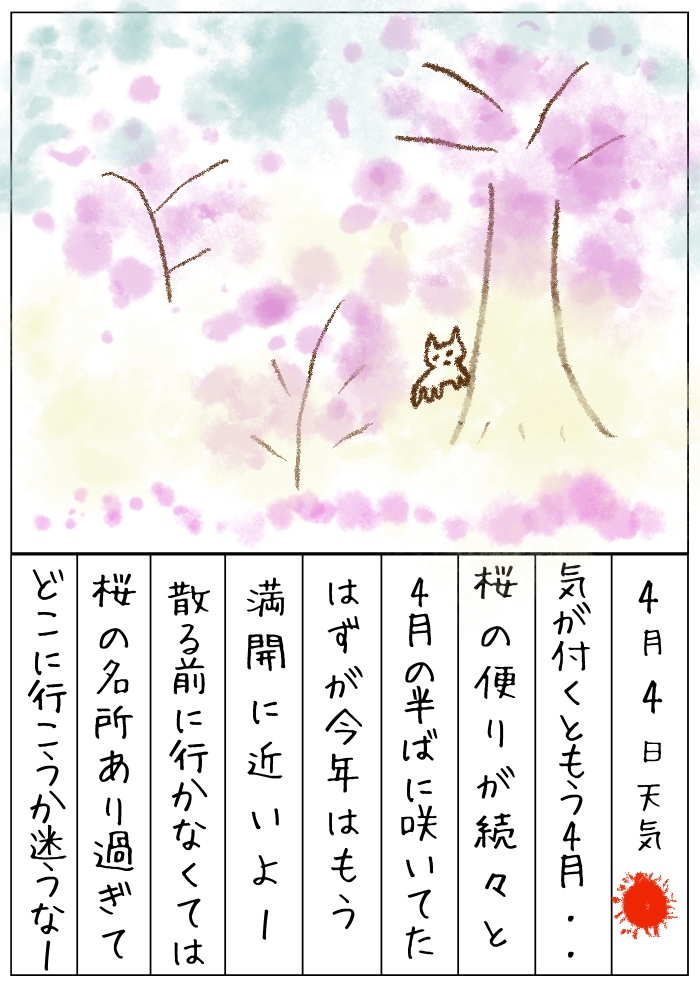 4月4日天気
気が付くともう4月・・
桜の便りが続々と
4月の半ばに咲いてた
はずが今年はもう
満開に近いよー
散る前に行かなくては
桜の名所あり過ぎて
どこに行こうか迷うなー